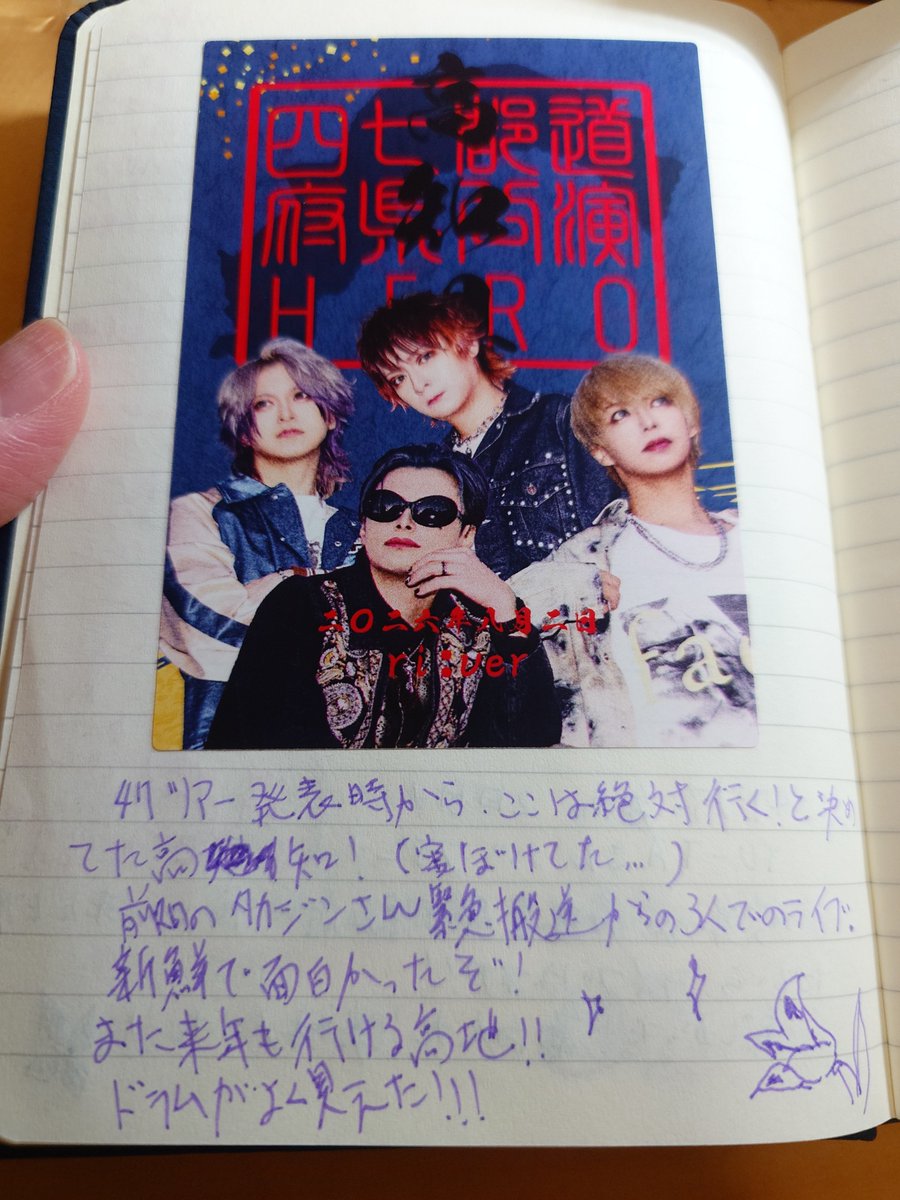 高知
四七都道
府県公演
HERO
二〇二六年八月二日
ri:ver
47ツアー発表時から、ここは絶対行く!と決め
てた高知!(寝ぼけてた…)
のタカジンさん緊急搬送からの3人でのライブ。
新鮮で面白かったぞ!
また来年も行ける高地!!
ドラムがよく見えた!!!